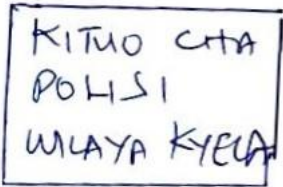 KITUO CHA
POLISI
WILAYA KYELA